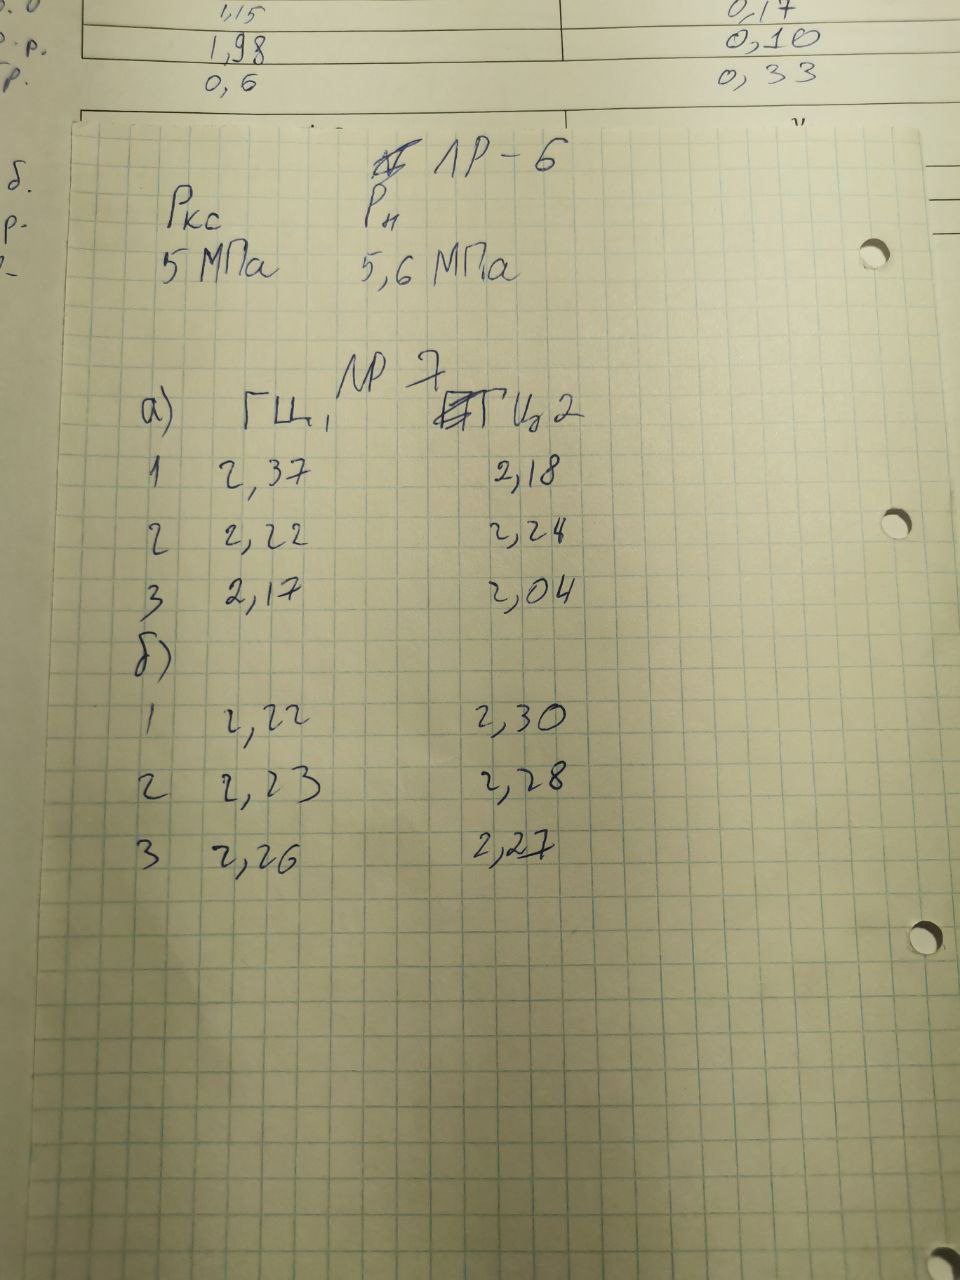 1,15 0,17
1,98 0,10
0,6 0,33
ЛР - 6
Ркс Рн
5 МПа 5,6 МПа
ЛР 7
а) ГЦ1 ГЦ2
1 2,37 2,18
2 2,22 2,24
3 2,17 2,04
б)
1 2,22 2,30
2 2,23 2,28
3 2,26 2,27